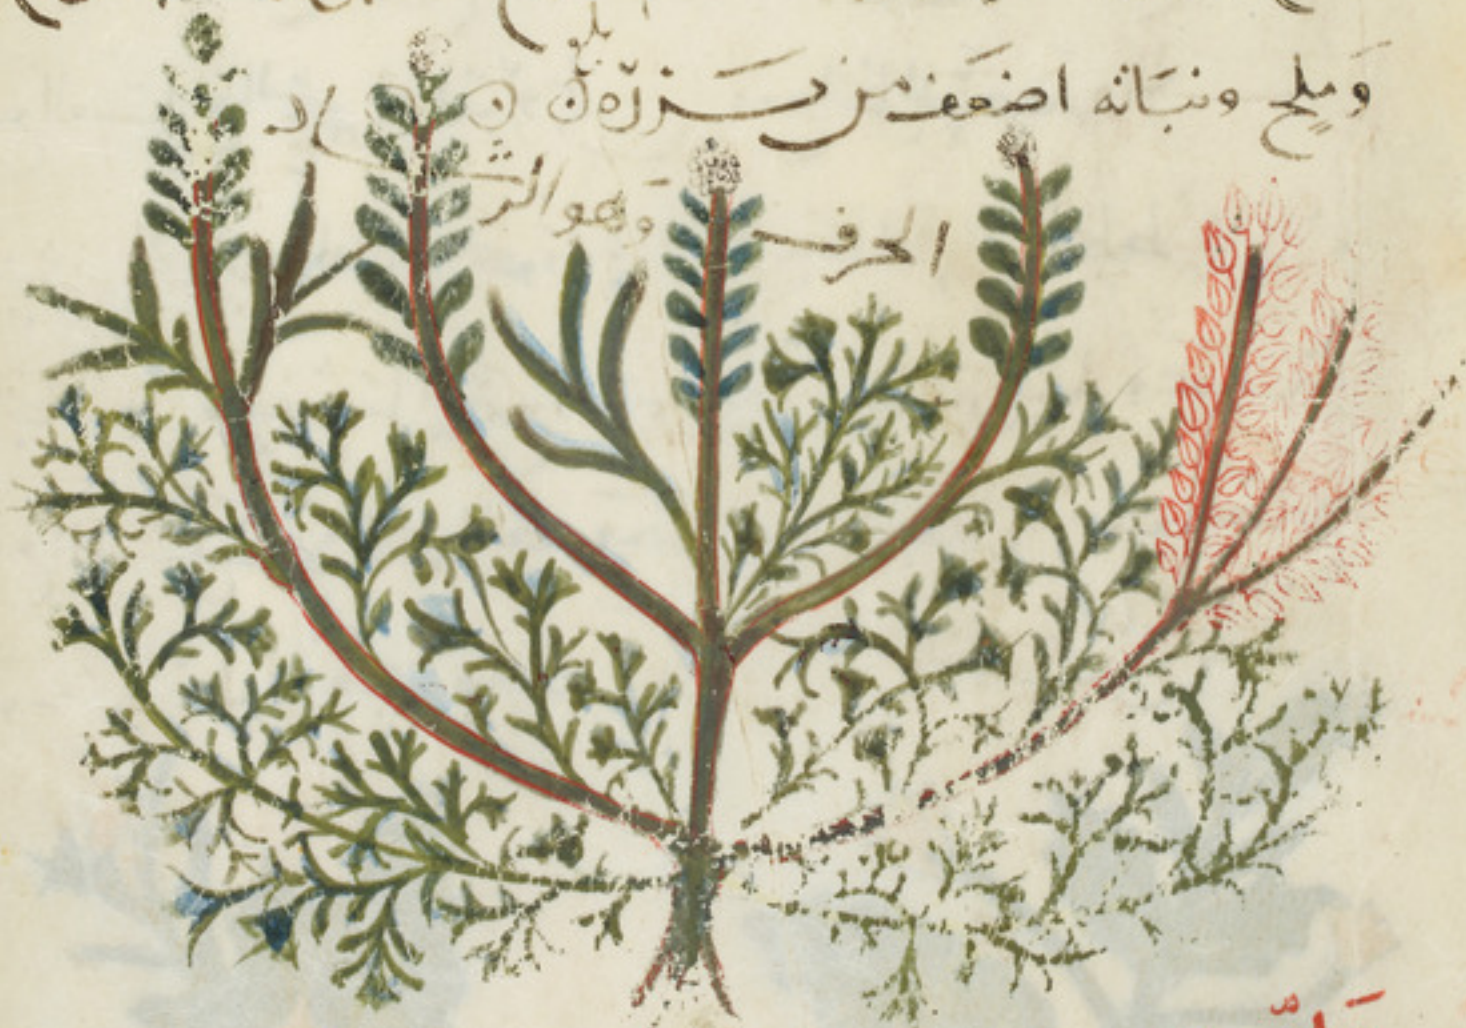 بلغ
وملح ونباته اضعف من بزره
الحرف وهو الرشاد